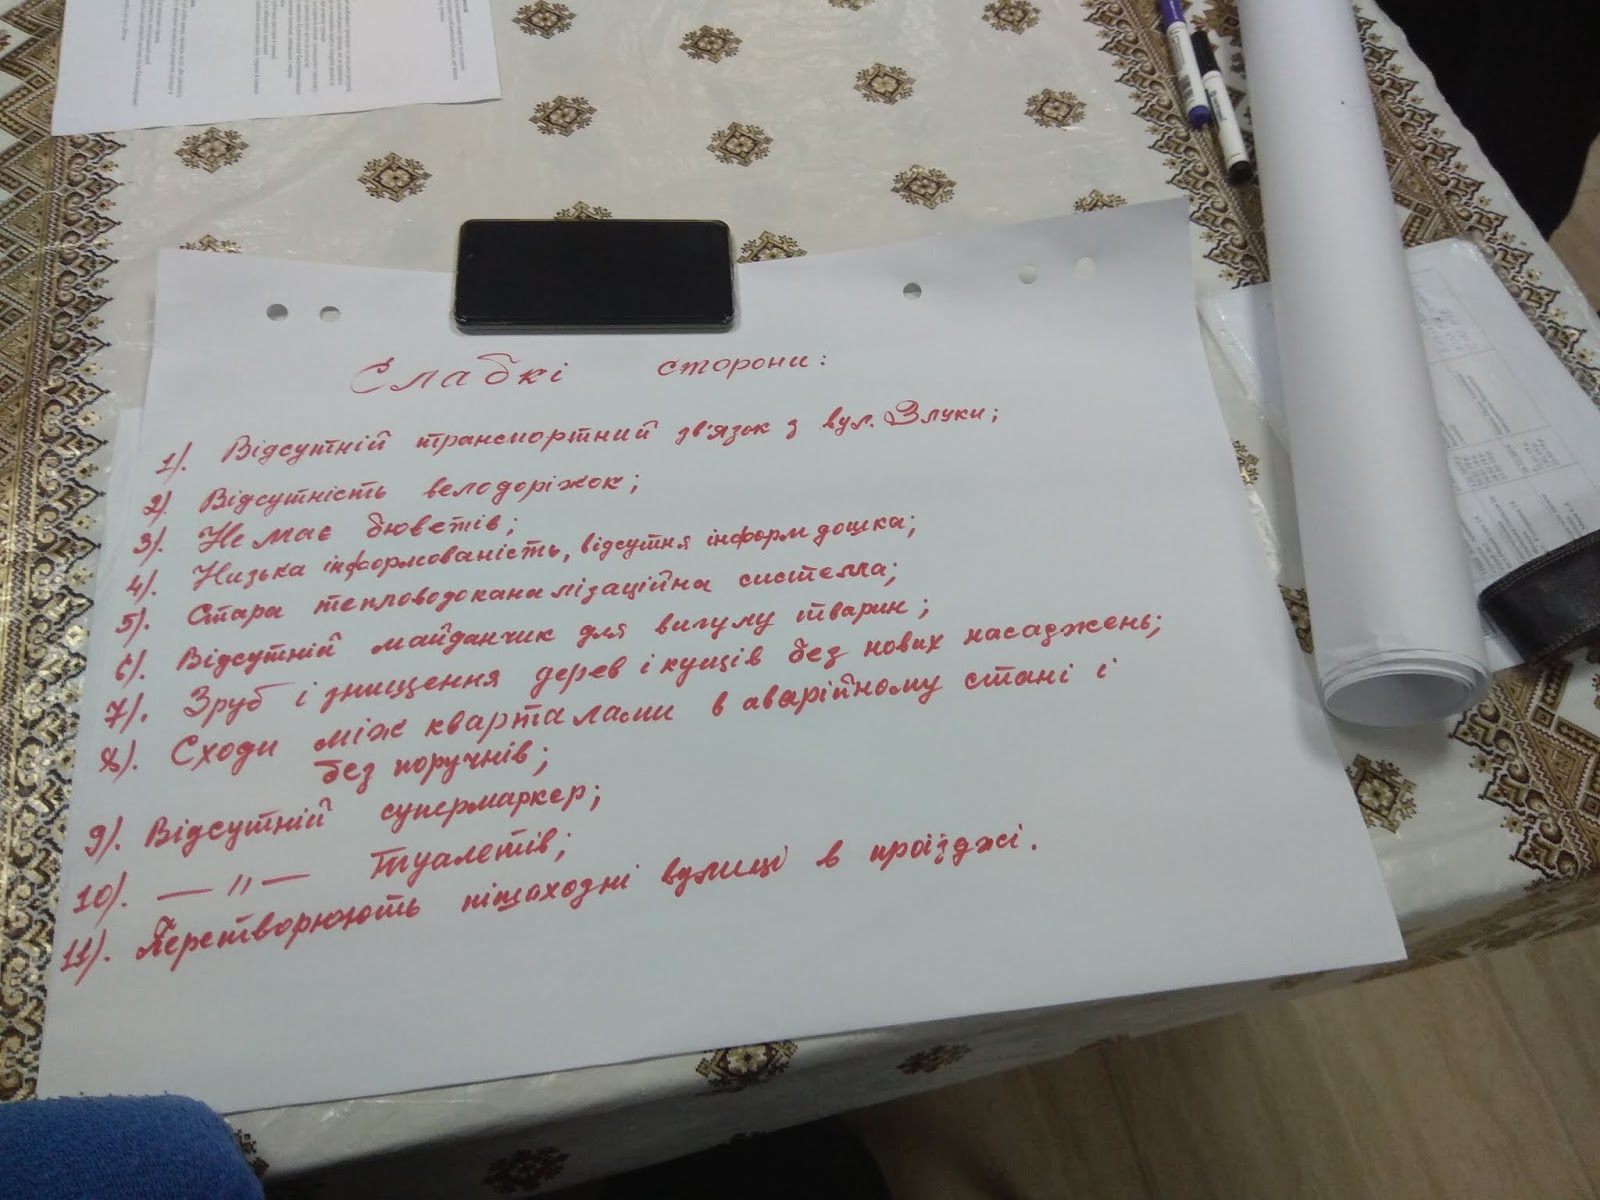 Слабкі сторони:
1). Відсутній транспортний зв'язок з вул. Злуки;
2). Відсутність велодоріжок;
3). Немає бюветів;
4). Низька інформованість, відсутня інформ дошка;
5). Стара тепловодоканалізаційна система;
6). Відсутній майданчик для вигулу тварин;
7). Зруб і знищення дерев і кущів без нових насаджень;
8). Сходи між кварталами в аварійному стані і
без поручнів;
9). Відсутній супермаркер;
10). — " — туалетів;
11). Перетворюють пішоходні вулиці в проїзджі.